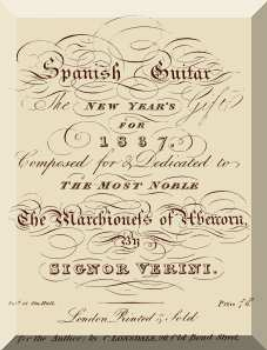 Spanish Guitar
The NEW YEAR'S Gift
FOR
1837.
Composed for & Dedicated to
THE MOST NOBLE
The Marchioness of Abercorn,
By
SIGNOR VERINI.
Price
London, Printed & Sold
for the Author; by C. LONSDALE, Old Bond Street.